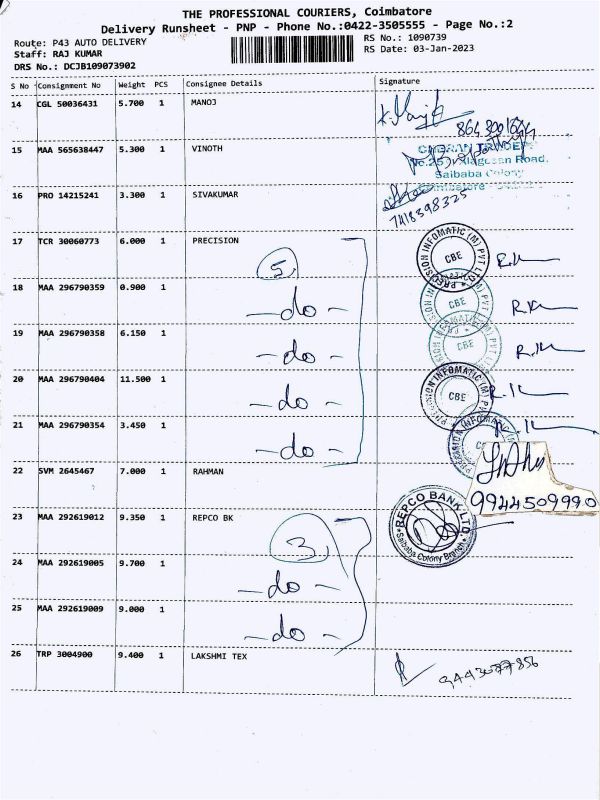 THE PROFESSIONAL COURIERS, Coimbatore
Delivery Runsheet - PNP - Phone No.:0422-3505555 - Page No.:2
Route: P43 AUTO DELIVERY
RS No.: 1090739
Staff: RAJ KUMAR
RS Date: 03-Jan-2023
DRS No.: DCJB109073902
S No Consignment No Weight PCS Consignee Details Signature
14 CGL 50036431 5.700 1 MANOJ
15 MAA 565638447 5.300 1 VINOTH
Road,
Saibaba Colony
16 PRO 14215241 3.300 1 SIVAKUMAR
7418398325
17 TCR 30060773 6.000 1 PRECISION
PRECISION INFOMATIC (M) PVT LTD
CBE
5
18 MAA 296790359 0.900 1 -do-
CBE
19 MAA 296790358 6.150 1 -do-
CBE
20 MAA 296790404 11.500 1 -do-
PRECISION INFOMATIC (M) PVT
CBE
21 MAA 296790354 3.450 1 -do-
22 SVM 2645467 7.000 1 RAHMAN
9944509990
23 MAA 292619012 9.350 1 REPCO BK
REPCO BANK LTD.
Saibaba Colony Branch
3
24 MAA 292619005 9.700 1 -do-
25 MAA 292619009 9.000 1 -do-
26 TRP 3004900 9.400 1 LAKSHMI TEX